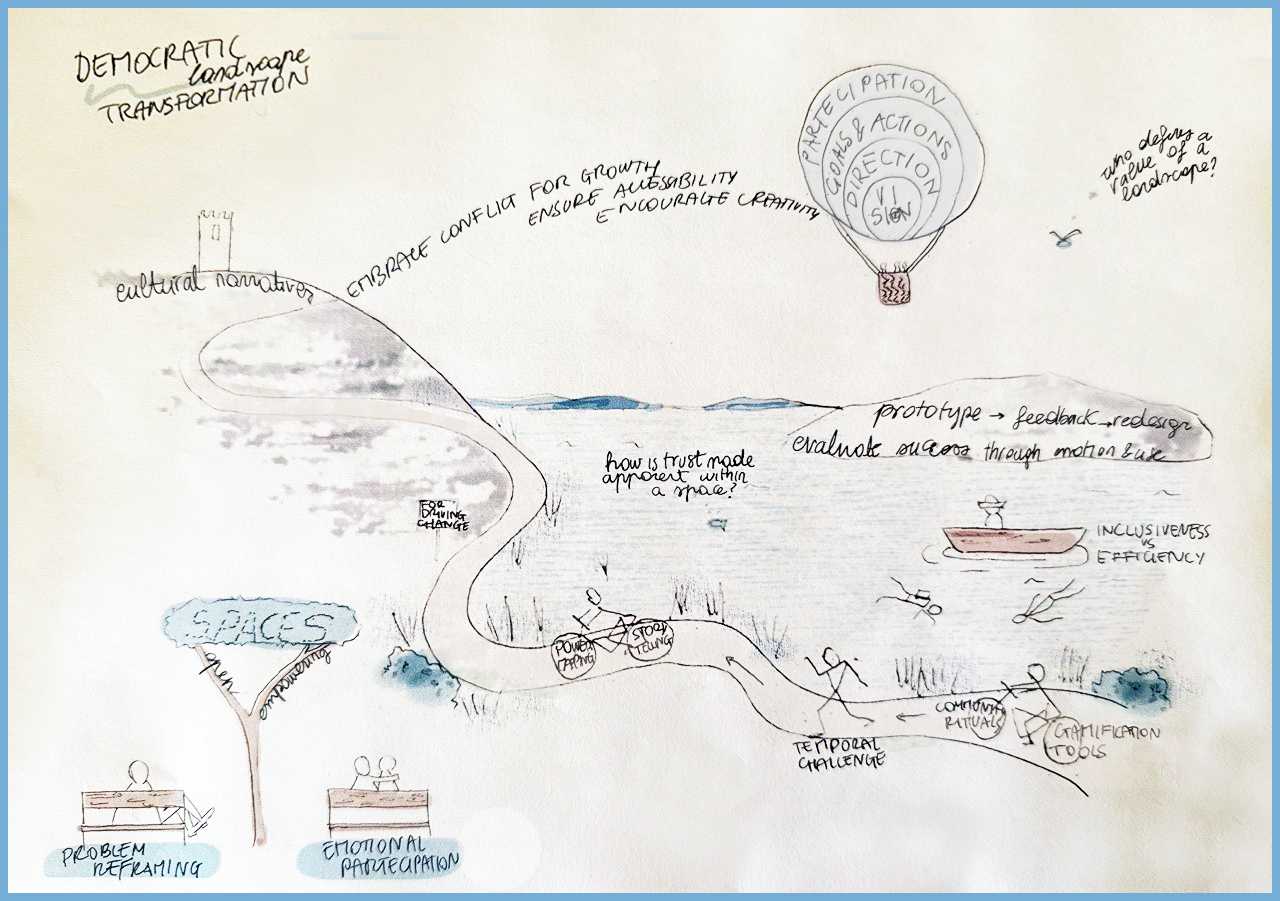 DEMOCRATIC
landscape
TRANSFORMATION
PARTECIPATION
GOALS & ACTIONS
DIRECTION
VI
SION
who defines a
value of a
landscape?
EMBRACE CONFLICT FOR GROWTH
ENSURE ACCESSIBILITY
ENCOURAGE CREATIVITY
cultural narratives
prototype → feedback → redesign
evaluate success through emotion & use
how is trust made
apparent within
a space?
FOR
DRIVING
CHANGE
INCLUSIVENESS
VS
EFFICIENCY
SPACES
open
empowering
POWER
MAPPING
STORY
TELLING
COMMUNITY
RITUALS
GAMIFICATION
TOOLS
TEMPORAL
CHALLENGE
PROBLEM
REFRAMING
EMOTIONAL
PARTECIPATION